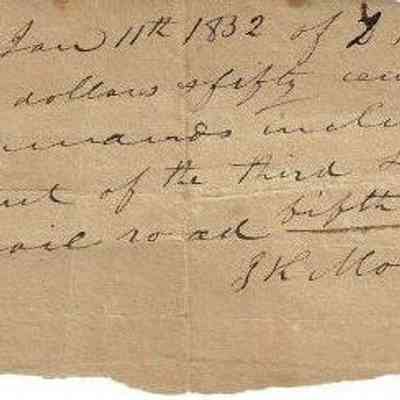 Jan 11th 1832 of
dollars & fifty cen
emands inclu
ut of the third
ail road fifth
J K Mo